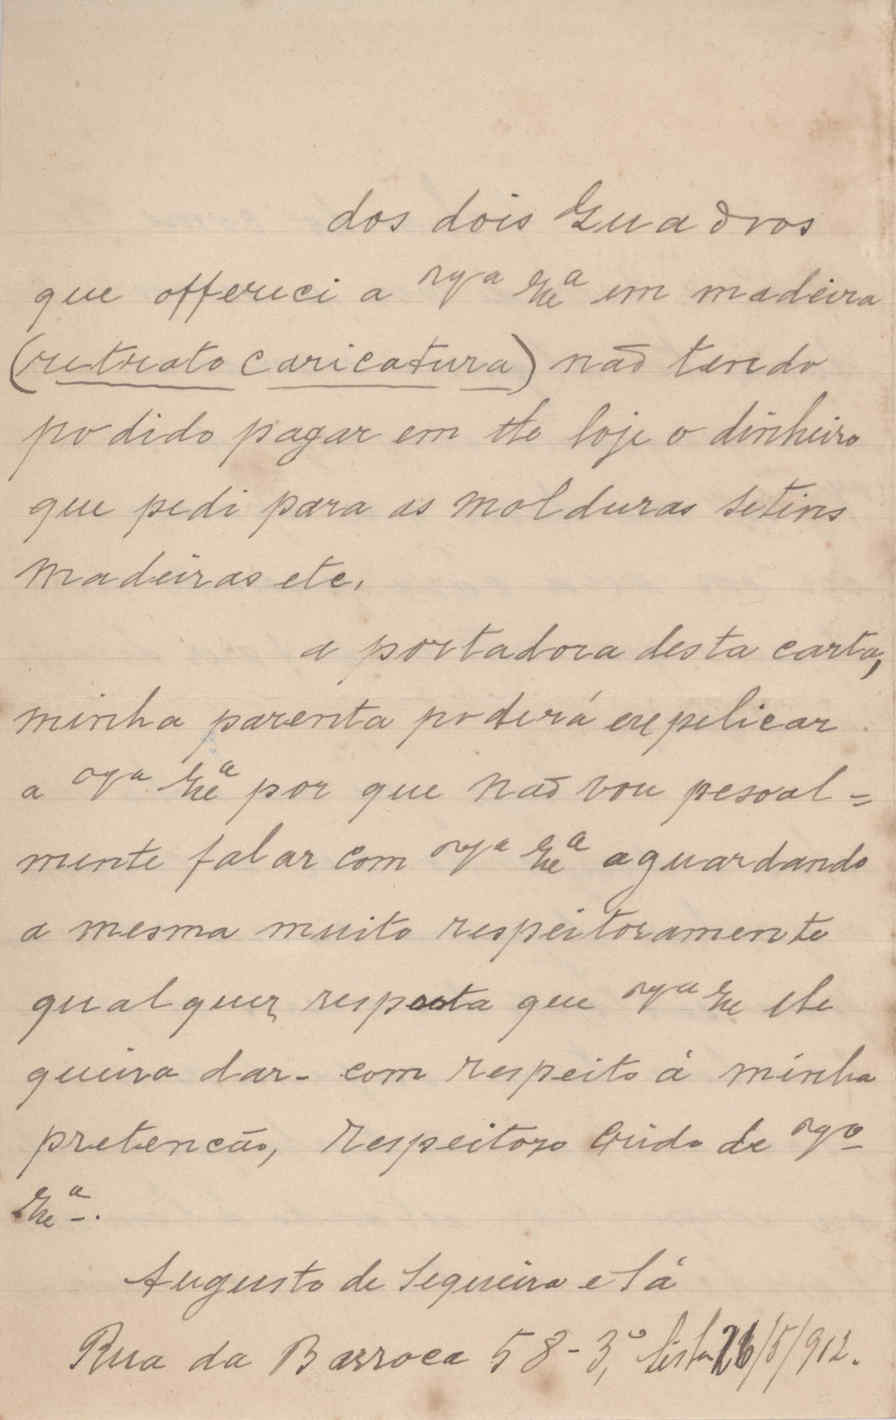 dos dois Quadros
que offereci a Vª Exª em madeira
(retrato caricatura) não tendo
podido pagar em the loje o dinheiro
que pedi para as molduras setins
madeiras etc.
a portadora desta carta,
minha parenta poderá expelicar
a Vª Exª por que não vou pesoal=
mente falar com Vª Exª aguardando
a mesma muito respeitozamente
qualquer resposta que Vª Ex lhe
queira dar- com respeito á minha
pretencão, Respeitozo Criado de Vª
Exª.
Augusto de Sequeira e Sá
Rua da Barroca 58-3,º Lisbª 26/5/912.